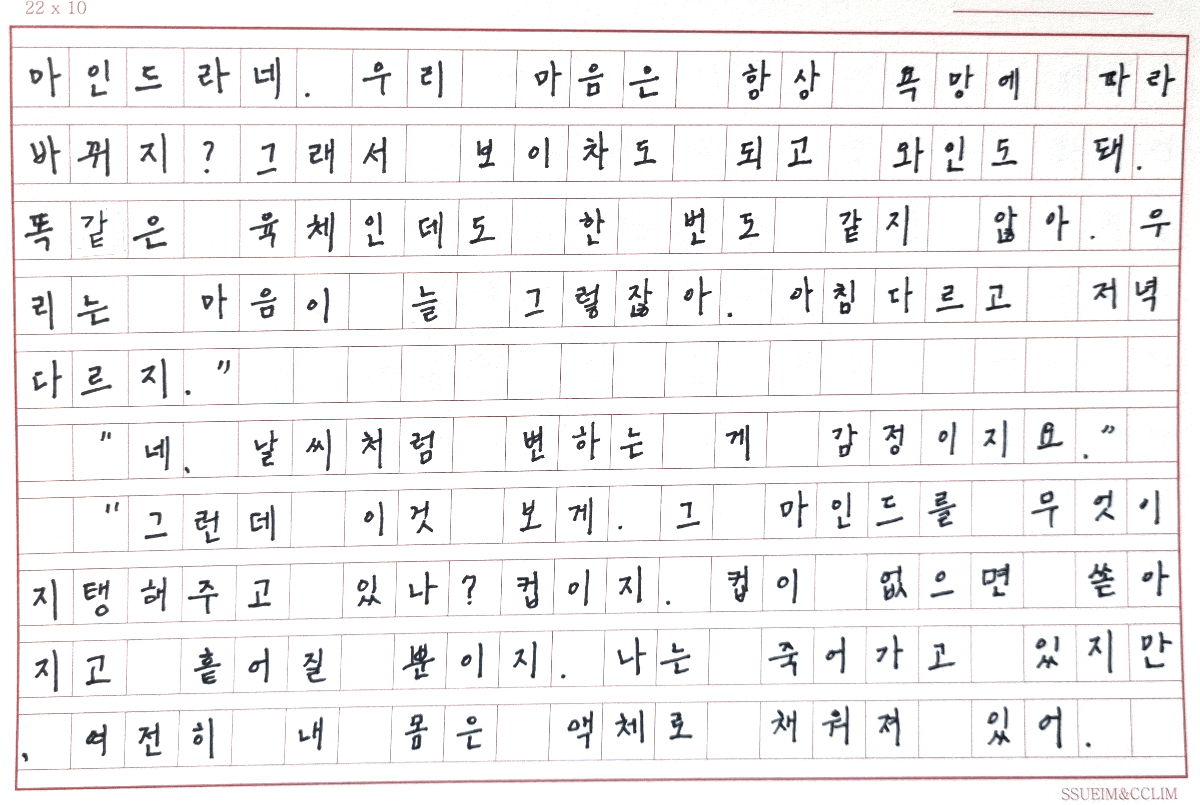 22 x 10
아인드라네. 우리 마음은 항상 욕망에 따라
바뀌지? 그래서 보이차도 되고 와인도 돼.
똑같은 육체인데도 한 번도 같지 않아. 우
리는 마음이 늘 그렇잖아. 아침 다르고 저녁
다르지."
"네. 날씨처럼 변하는 게 감정이지요."
"그런데 이것 보게. 그 마인드를 무엇이
지탱해주고 있나? 컵이지. 컵이 없으면 쏟아
지고 흩어질 뿐이지. 나는 죽어가고 있지만
, 여전히 내 몸은 액체로 채워져 있어.
SSUEIM&CCLIM